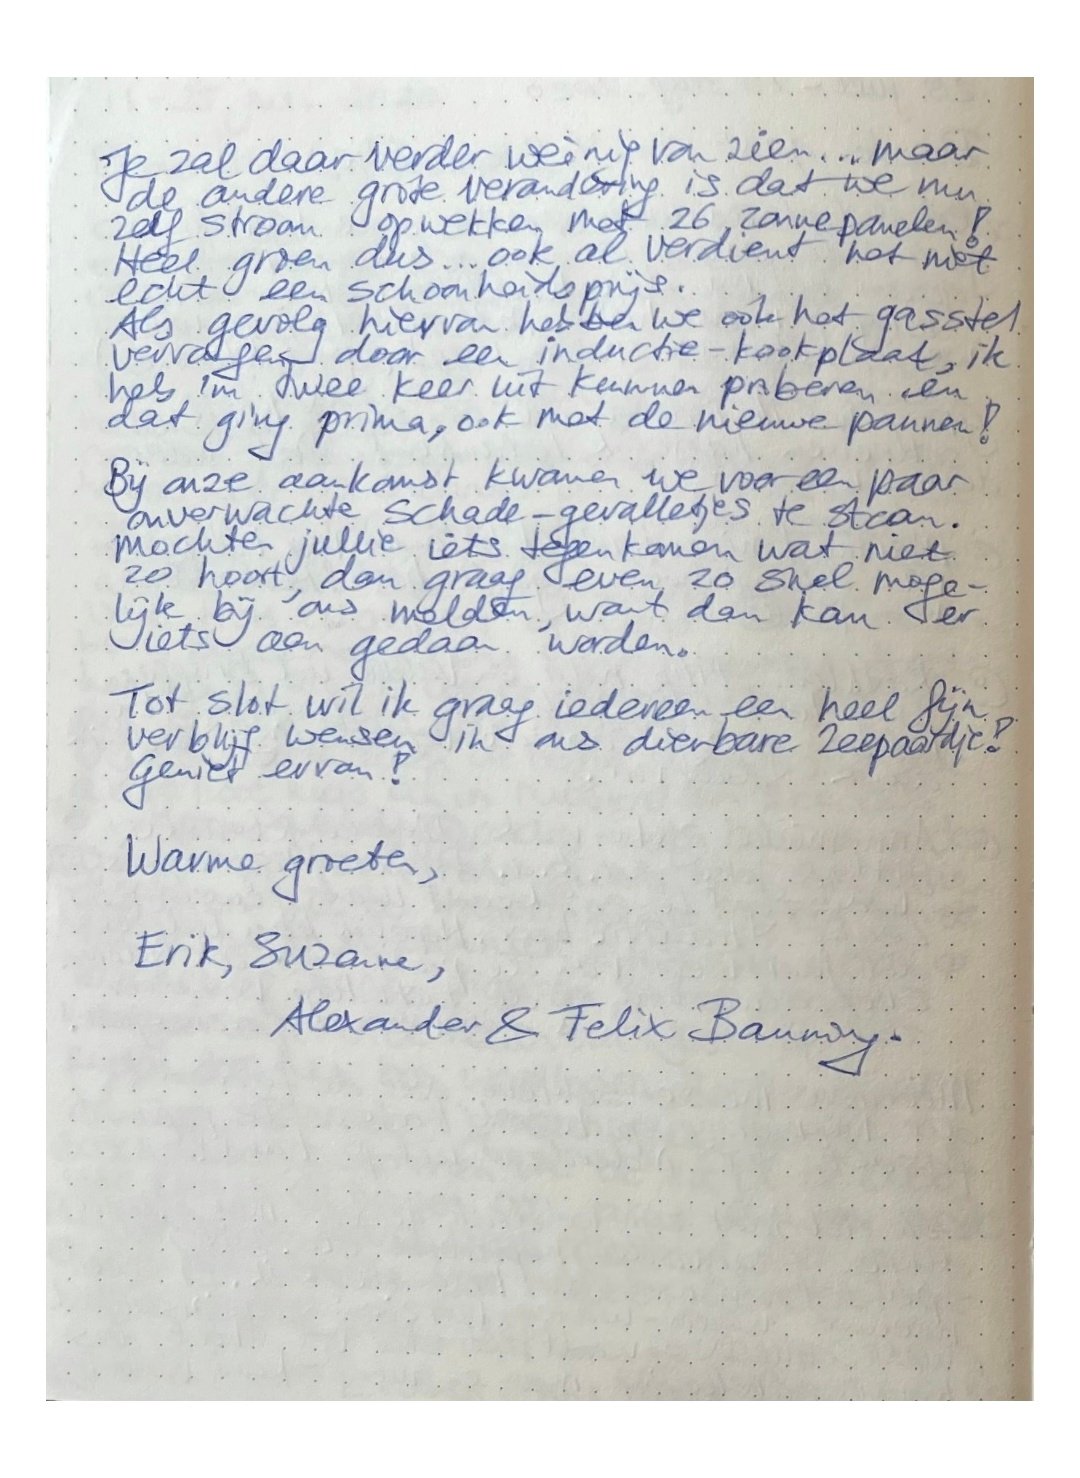 Je zal daar verder weinig van zien... maar
de andere grote verandering is dat we nu
zelf stroom opwekken met 26 zonnepanelen!
Heel groen dus... ook al verdient het niet
echt een schoonheidsprijs.
Als gevolg hiervan hebben we ook het gasstel
vervangen door een inductie-kookplaat, ik
heb 'm twee keer uit kunnen proberen en
dat ging prima, ook met de nieuwe pannen!
Bij onze aankomst kwamen we voor een paar
onverwachte schade-gevalletjes te staan.
mochten jullie iets tegenkomen wat niet
zo hoort, dan graag even zo snel moge-
lijk bij ons melden, want dan kan er
iets aan gedaan worden.
Tot slot wil ik graag iedereen een heel fijn
verblijf wensen in ons dierbare Zeepaardje!
Geniet ervan!
Warme groeten,
Erik, Suzanne,
Alexander & Felix